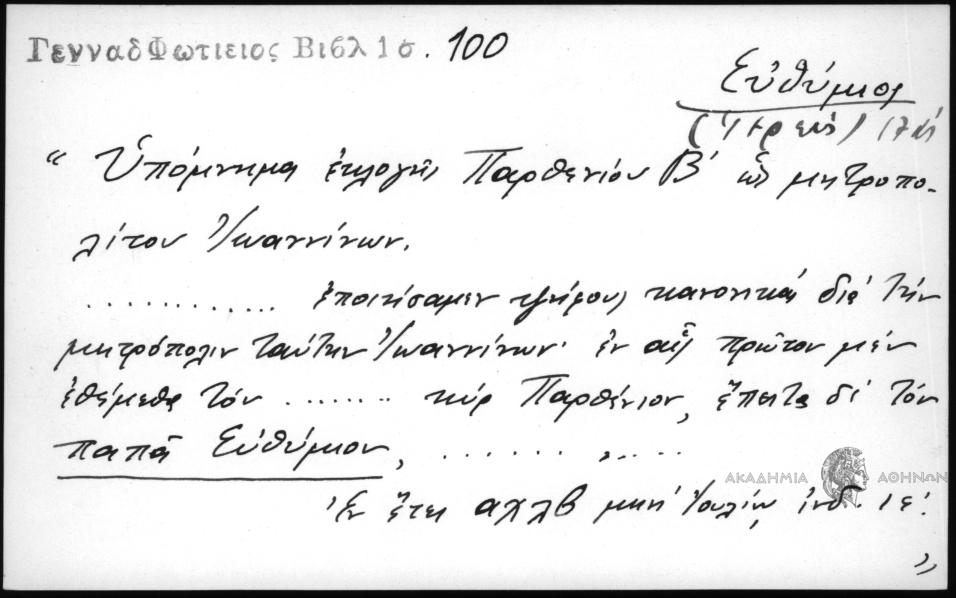 Γενναδ Φωτιειος Βιβλ 1σ. 100
Εὐθύμιος
(Ἱερεὺς) 17
"Ὑπόμνημα ἐκλογῆς Παρθενίου Β' ὡς μητροπο-
λίτου Ἰωαννίνων.
............. ἐποιήσαμεν ψήφους κανονικάς διά τήν
μητρόπολιν ταύτην Ἰωαννίνων· ἐν αἷς πρῶτον μέν
ἐθέμεθα τόν ........ κύρ Παρθένιον, ἔπειτα δέ τόν
παπᾶ Εὐθύμιον, ...... , .....
Ἐν ἔτει αχλβ μηνί Ἰουλίῳ ἰνδ. ιε'.
"
ΑΚΑΔΗΜΙΑ ΑΘΗΝΩΝ